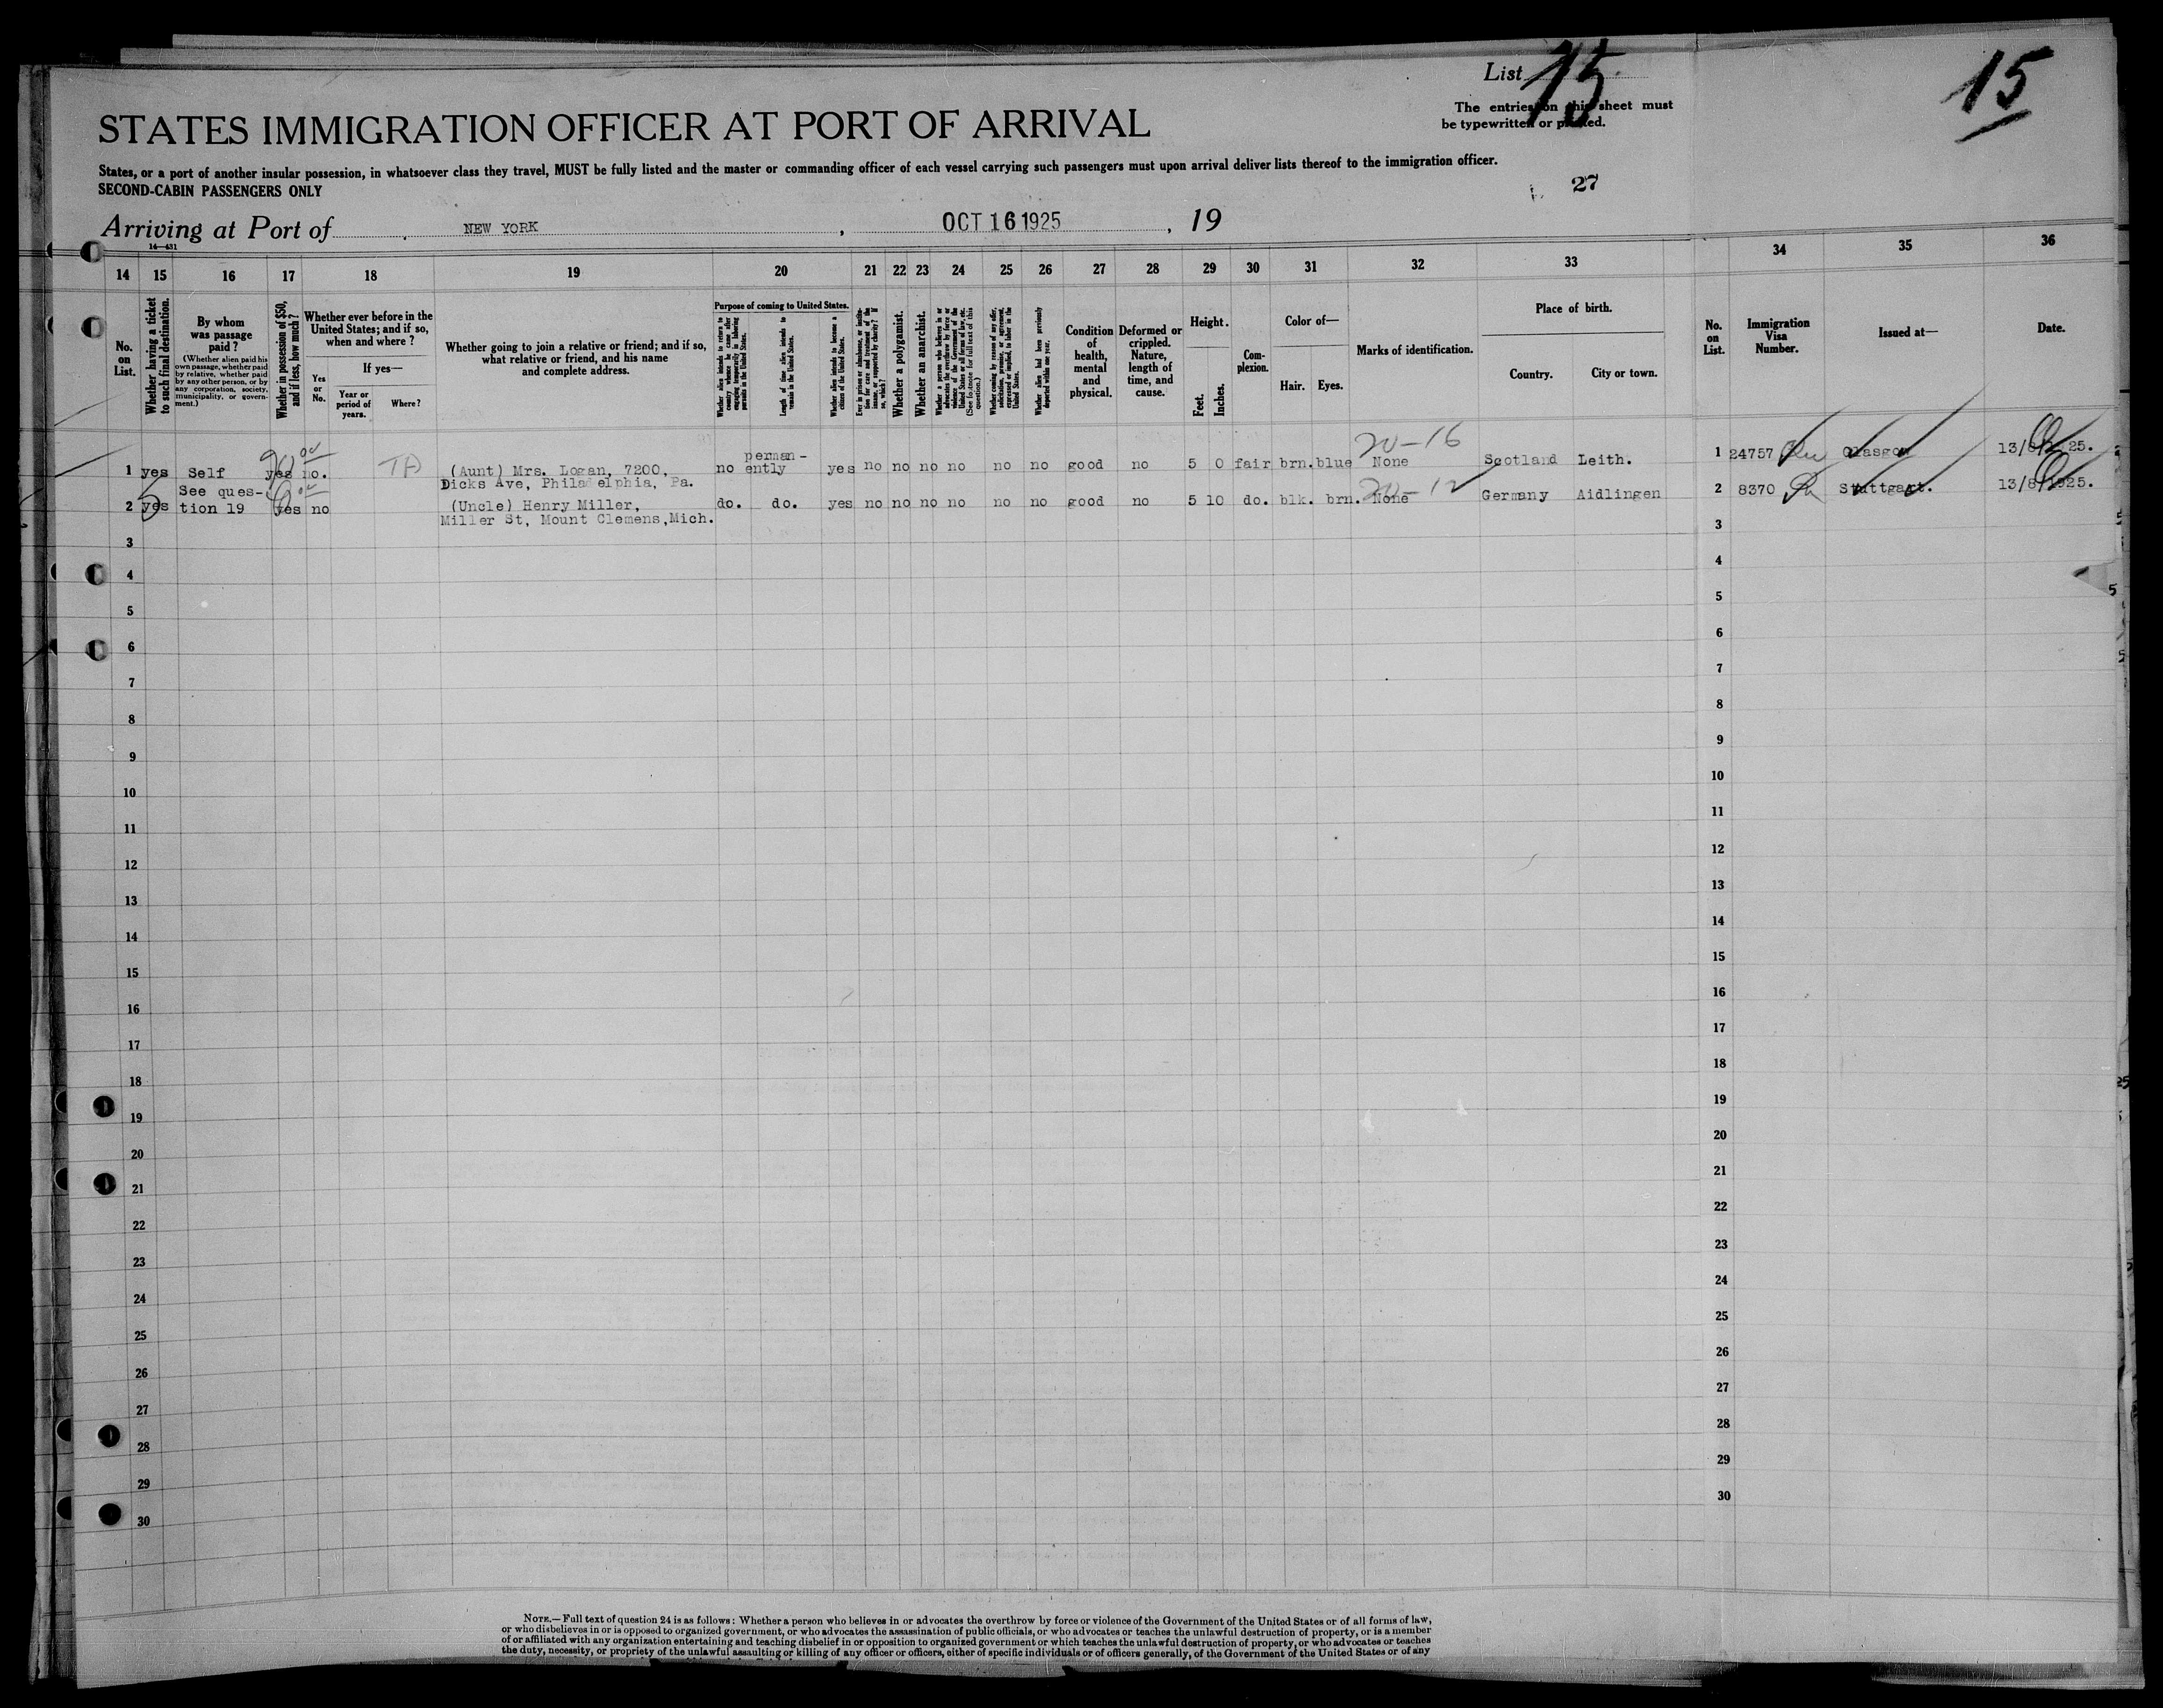 List 15
15
The entries on this sheet must
be typewritten or printed.
STATES IMMIGRATION OFFICER AT PORT OF ARRIVAL
States, or a port of another insular possession, in whatsoever class they travel, MUST be fully listed and the master or commanding officer of each vessel carrying such passengers must upon arrival deliver lists thereof to the immigration officer.
SECOND-CABIN PASSENGERS ONLY
27
Arriving at Port of NEW YORK, OCT 16 1925, 19
14—431
14 15 16 17 18 19 20 21 22 23 24 25 26 27 28 29 30 31 32 33 34 35 36
No. on List.
Whether having a ticket to such final destination.
By whom was passage paid?
(Whether alien paid his own passage, whether paid by relative, whether paid by any other person, or by any corporation, society, municipality, or government.)
Whether in possession of $50, and if less, how much?
Whether ever before in the United States; and if so, when and where?
Yes or No.
If yes—
Year or period of years.
Where?
Whether going to join a relative or friend; and if so, what relative or friend, and his name and complete address.
Purpose of coming to United States.
Whether alien intends to return to country whence he came after engaging temporarily in laboring pursuits in the United States.
Length of time alien intends to remain in the United States.
Whether alien intends to become a citizen of the United States.
Ever in prison or almshouse, or institution for care and treatment of the insane, or supported by charity? If so, which?
Whether a polygamist.
Whether an anarchist.
Whether a person who believes in or advocates the overthrow by force or violence of the Government of the United States or all forms of law, etc. (See footnote for full text of this question.)
Whether coming by reason of any offer, solicitation, promise, or agreement, expressed or implied, to labor in the United States.
Whether alien had been previously deported within one year.
Condition of health, mental and physical.
Deformed or crippled. Nature, length of time, and cause.
Height.
Feet. Inches.
Complexion.
Color of—
Hair. Eyes.
Marks of identification.
Place of birth.
Country. City or town.
No. on List.
Immigration Visa Number.
Issued at—
Date.
90 00
20-16
1 yes Self yes no. TA (Aunt) Mrs. Logan, 7200, Dicks Ave, Philadelphia, Pa. no permanently yes no no no no no no good no 5 0 fair brn. blue None Scotland Leith. 1 24757 Glasgow 13/8/1925.
20-12
2 yes See question 19 yes no (Uncle) Henry Miller, Miller St, Mount Clemens, Mich. do. do. yes no no no no no no good no 5 10 do. blk. brn. None Germany Aidlingen 2 8370 Stuttgart. 13/8/1925.
3 3
4 4
5 5
6 6
7 7
8 8
9 9
10 10
11 11
12 12
13 13
14 14
15 15
16 16
17 17
18 18
19 19
20 20
21 21
22 22
23 23
24 24
25 25
26 26
27 27
28 28
29 29
30 30
NOTE.—Full text of question 24 is as follows: Whether a person who believes in or advocates the overthrow by force or violence of the Government of the United States or of all forms of law,
or who disbelieves in or is opposed to organized government, or who advocates the assassination of public officials, or who advocates or teaches the unlawful destruction of property, or is a member
of or affiliated with any organization entertaining and teaching disbelief in or opposition to organized government or which teaches the unlawful destruction of property, or who advocates or teaches
the duty, necessity, or propriety of the unlawful assaulting or killing of any officer or officers, either of specific individuals or of officers generally, of the Government of the United States or of any